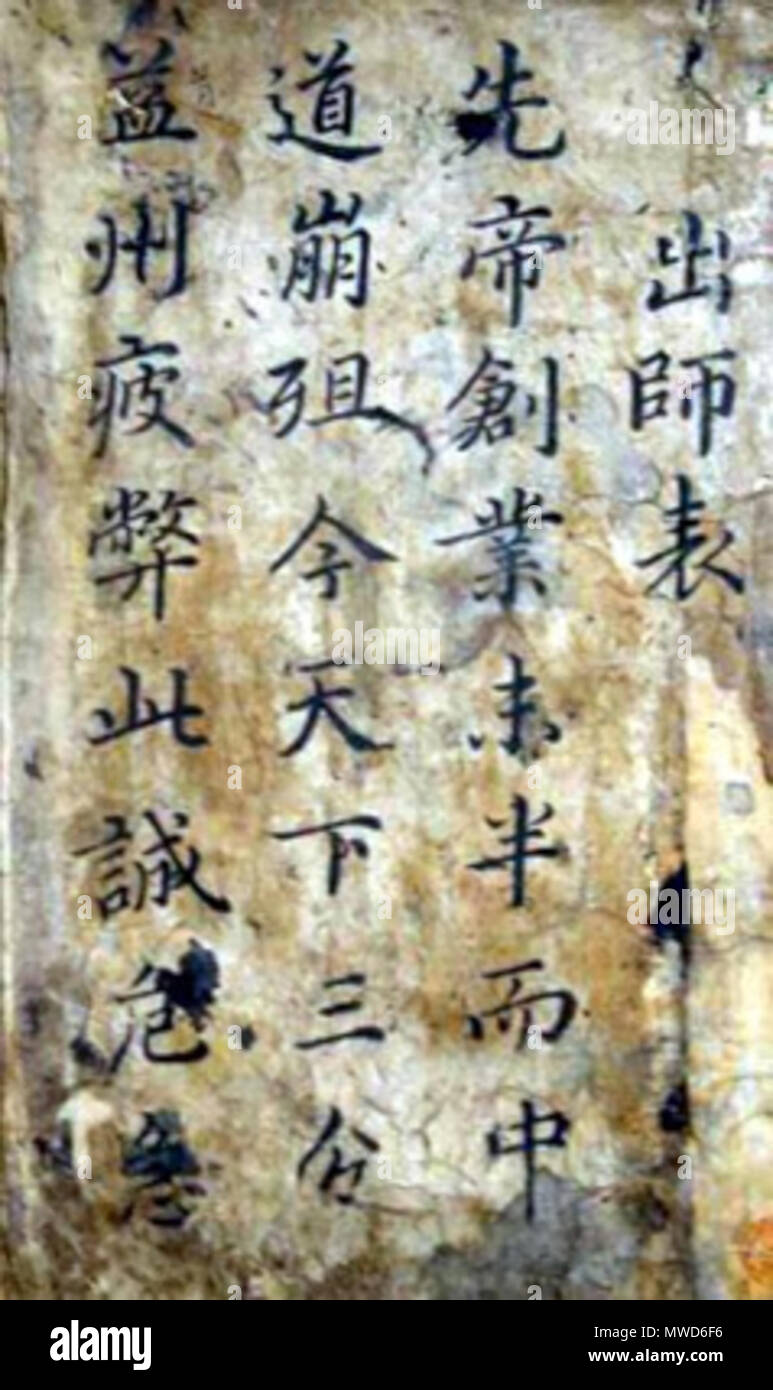 出師表
先帝創業未半而中
道崩殂今天下三分
益州疲弊此誠危急
alamy
alamy
alamy
alamy
Image ID: MWD6F6
www.alamy.com